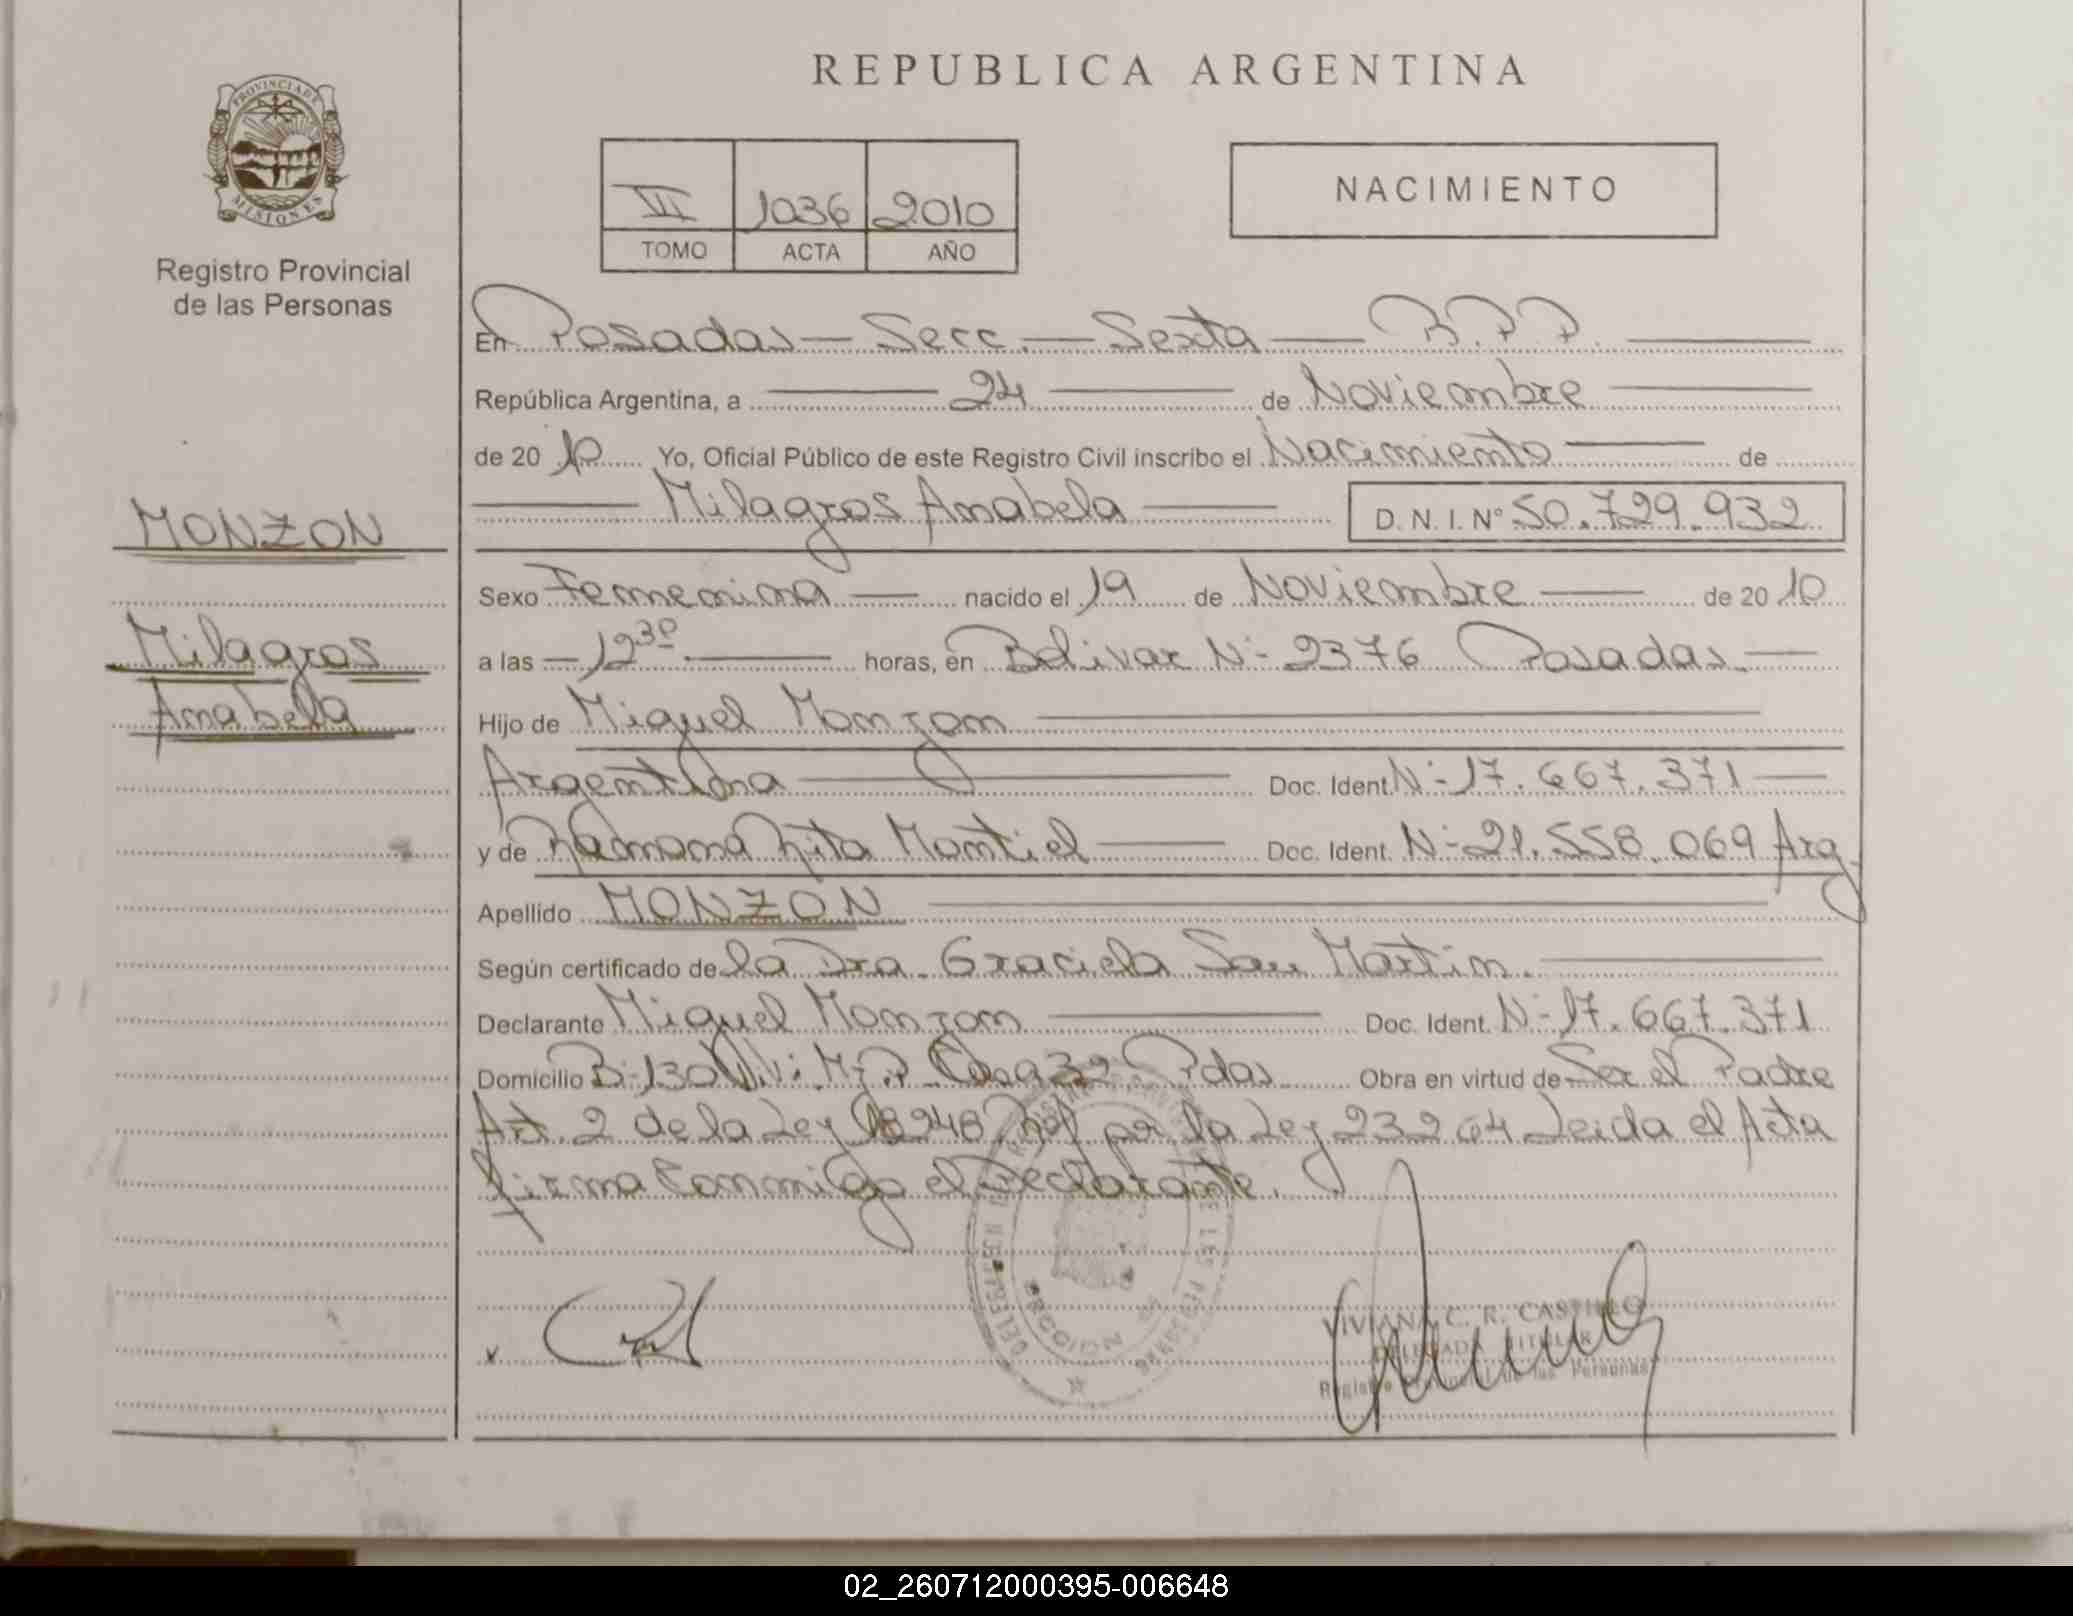 REPUBLICA ARGENTINA
PROVINCIA DE
MISIONES
Registro Provincial
de las Personas
VII 1036 2010
TOMO ACTA AÑO
NACIMIENTO
En Posadas - Secc. - Sexta - B.P.P.
República Argentina, a 24 de Noviembre
de 2010 Yo, Oficial Público de este Registro Civil inscribo el Nacimiento de
Milagros Anabela D.N.I. Nº 50.729.932
MONZON
Milagros
Anabela
Sexo Femenina nacido el 19 de Noviembre de 2010
a las - 12 30 horas, en Bolivar Nº 2376 Posadas
Hijo de Miguel Monzon
Argentina Doc. Ident. Nº 17.667.371
y de Ramona Rita Montiel Doc. Ident. Nº 21.558.069 Arg
Apellido MONZON
Según certificado de la Dra. Graciela San Martin.
Declarante Miguel Monzon Doc. Ident. Nº 17.667.371
Domicilio Bº 130 Viv. Casa 32 Pdas Obra en virtud de Ser el Padre
Art. 2 de la Ley 18248 Ref por la Ley 23264 Leida el Acta
firma Conmigo el Declarante.
SECCION
VIVIANA C. R. CASTILLO
DELEGADA TITULAR
Registro Provincial de las Personas
02_260712000395-006648